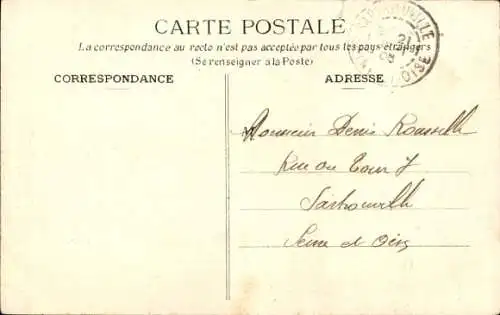 CARTE POSTALE
La correspondance au recto n'est pas acceptée par tous les pays étrangers
(Se renseigner à la Poste)
CORRESPONDANCE
ADRESSE
Monsieur Denis Rousselle
Rue du Four 7
Sartrouville
Seine et Oise